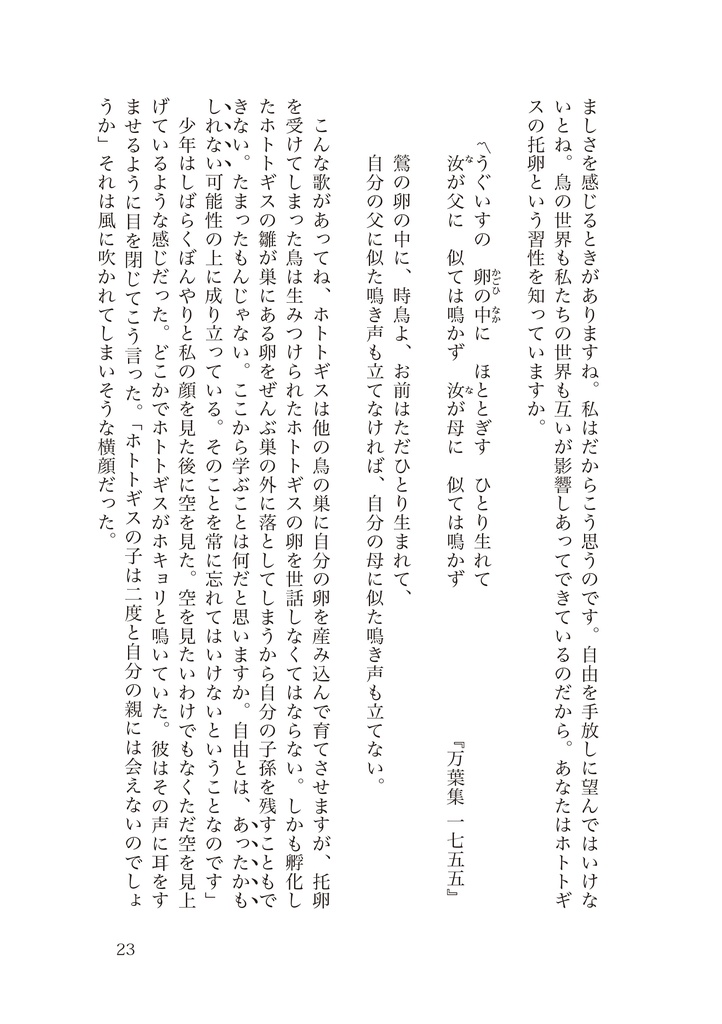 ましさを感じるときがありますね。私はだからこう思うのです。自由を手放しに望んではいけな
いとね。鳥の世界も私たちの世界も互いが影響しあってできているのだから。あなたはホトトギ
スの托卵という習性を知っていますか。
〽うぐいすの　卵の中に　ほととぎす　ひとり生れて
かごひ　なか
汝が父に　似ては鳴かず　汝が母に　似ては鳴かず
な　な
『万葉集 一七五五』
鶯の卵の中に、時鳥よ、お前はただひとり生まれて、
自分の父に似た鳴き声も立てなければ、自分の母に似た鳴き声も立てない。
こんな歌があってね、ホトトギスは他の鳥の巣に自分の卵を産み込んで育てさせますが、托卵
を受けてしまった鳥は生みつけられたホトトギスの卵を世話しなくてはならない。しかも孵化し
たホトトギスの雛が巣にある卵をぜんぶ巣の外に落としてしまうから自分の子孫を残すこともで
きない。たまったもんじゃない。ここから学ぶことは何だと思いますか。自由とは、あったかも
しれない可能性の上に成り立っている。そのことを常に忘れてはいけないということなのです」
少年はしばらくぼんやりと私の顔を見た後に空を見た。空を見たいわけでもなくただ空を見上
げているような感じだった。どこかでホトトギスがホキョリと鳴いていた。彼はその声に耳をす
ませるように目を閉じてこう言った。「ホトトギスの子は二度と自分の親には会えないのでしょ
うか」それは風に吹かれてしまいそうな横顔だった。
23